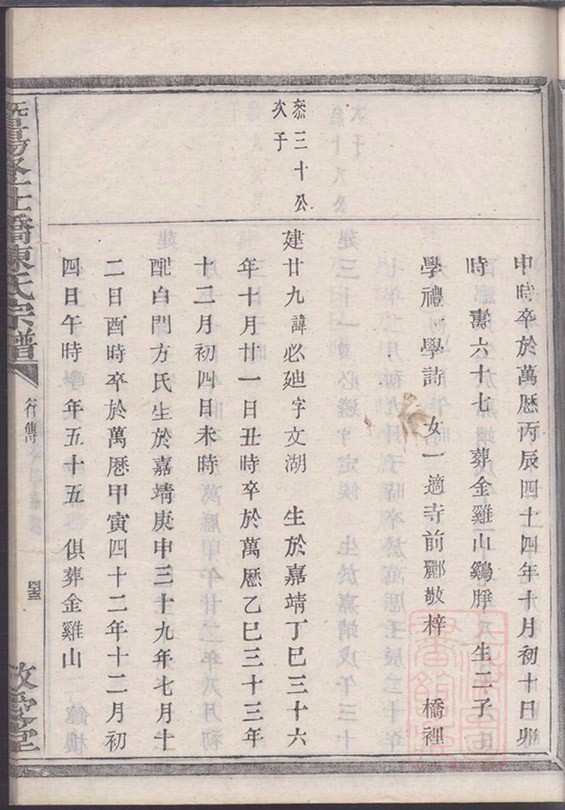 申時卒於萬歷丙辰四十四年十月初十日卯
時 壽六十七 葬金雞山鷄脖 生二子
學禮 學詩 女一適寺前酈敬梓 橋裡
叅三十公
次子
建廿九諱必廸字文湖 生於嘉靖丁巳三十六
年十月廿一日丑時卒於萬歷乙巳三十三年
十二月初四日未時
配白門方氏生於嘉靖庚申三十九年七月十
二日酉時卒於萬歷甲寅四十二年十二月初
四日午時 年五十五 俱葬金雞山
橋陳氏宗譜
行傳